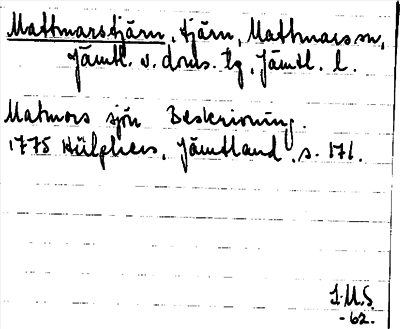 Mattmarstjärn, tjärn, Mattmars sn,
Jämtl. v. doms. tg, Jämtl. l.
Matmors sjön Beskrivning.
1775 Hülphers, Jämtland, s. 171.
J.M.S.
-62.